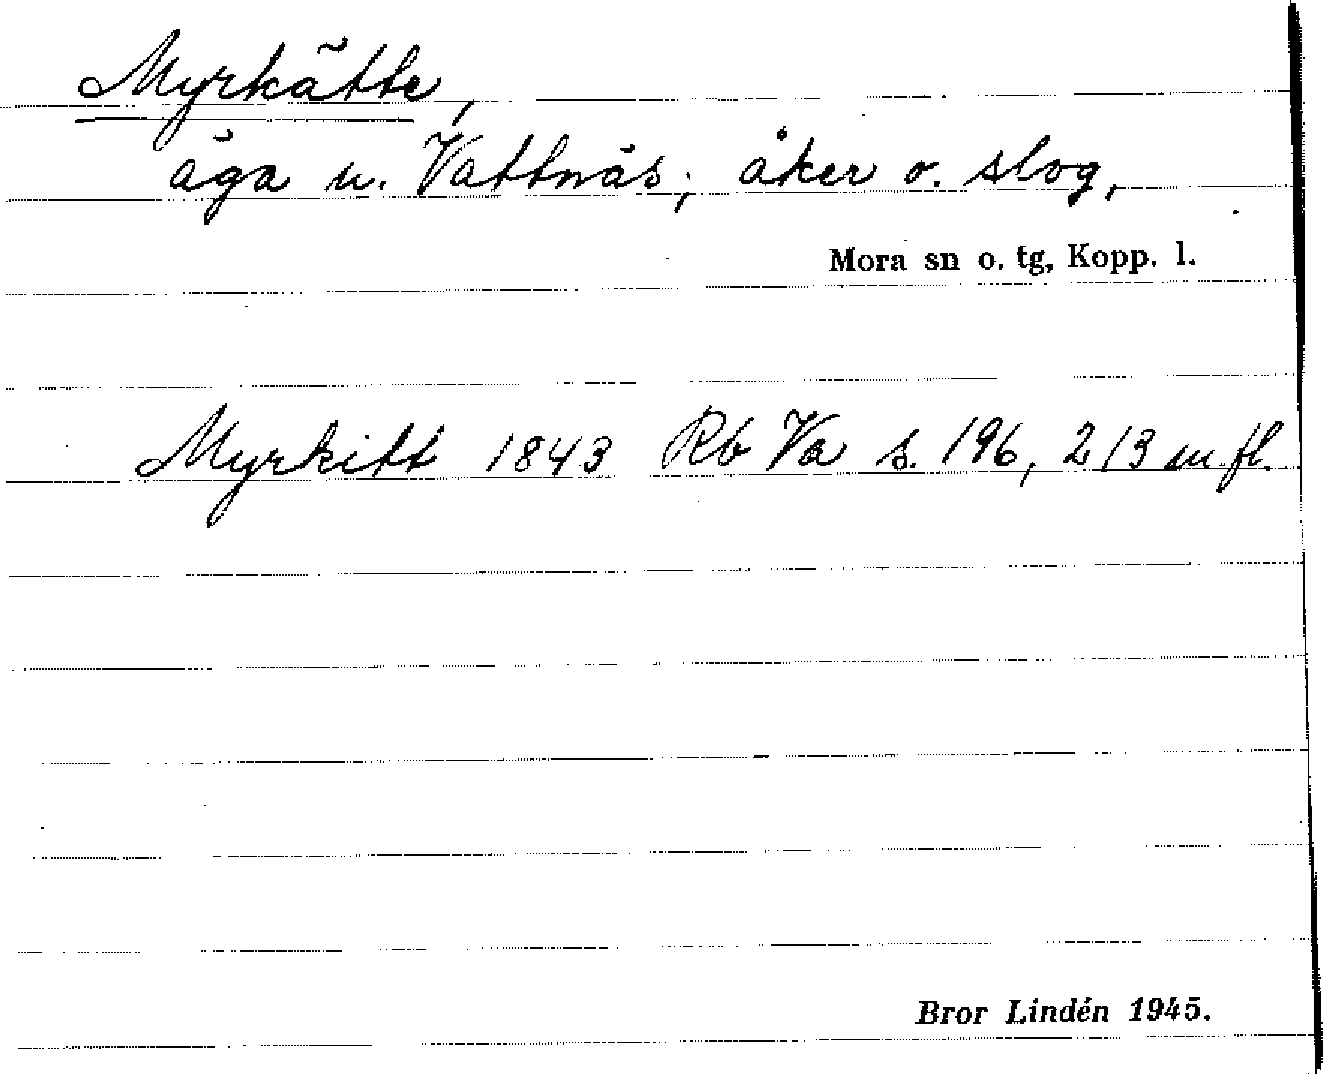 Myrkätte,
äga u. Vattnäs; åker o. slog,
Mora sn o. tg, Kopp. l.
Myrkitt 1843 Rb Va s. 196, 213 m. fl.
Bror Lindén 1945.